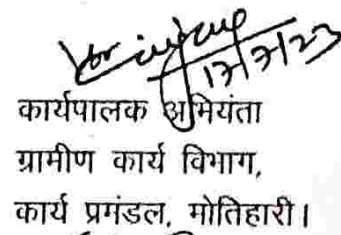 17/7/23
कार्यपालक अभियंता
ग्रामीण कार्य विभाग,
कार्य प्रमंडल, मोतिहारी।